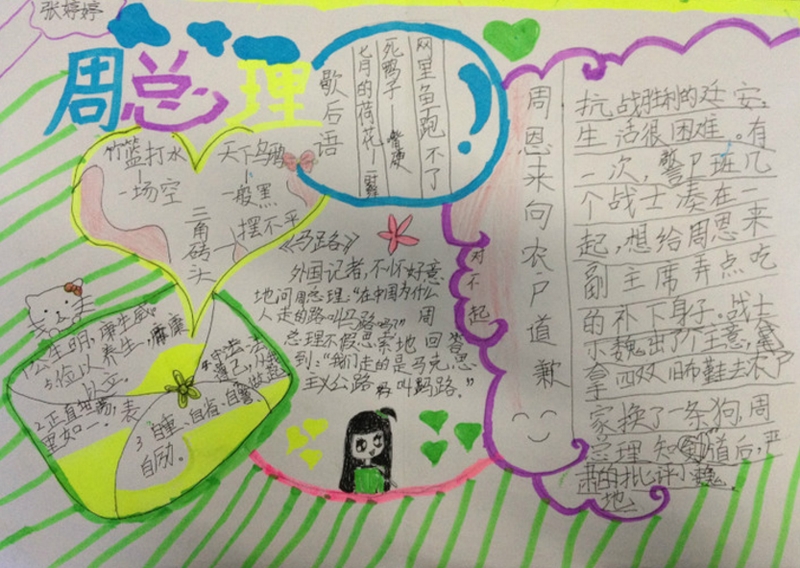 张婷婷
周总理
歇后语
网里鱼跑不了
死鸭子——嘴硬
七月的荷花—
竹篮打水
一场空
天下乌鸦
一般黑
三角砖头
摆不平
《马路》
外国记者,不怀好意
地问周总理:“在中国为什么
人走的路叫马路吗?”周
总理不假思索地回答
到:“我们走的是马克思
主义公路 叫马路.”
1公生明,廉生威。
2.正直
里如一.
3自重、自省、自警
自励。
对不起
周恩来向农户道歉
抗战胜利的延安,
生活很困难。有
一次,警卫班几
个战士凑在一
起,想给周恩来
副主席弄点吃
的补下身子。战士
小魏出了个主意,
拿四双旧布鞋去农户
家换了一条狗,周
总理知道后,严
肃的批评小魏。
地